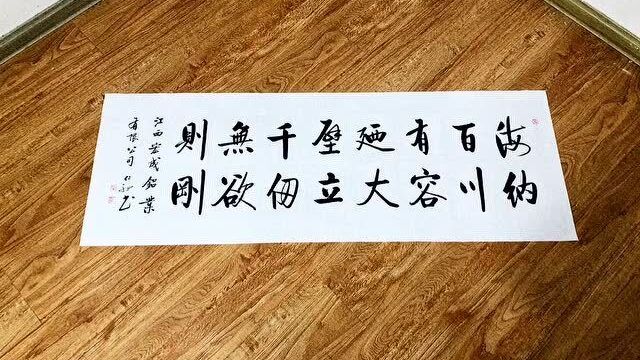 海纳
百川
有容
廼大
壁立
千仞
無欲
則剛
江西成铝業
有限公司